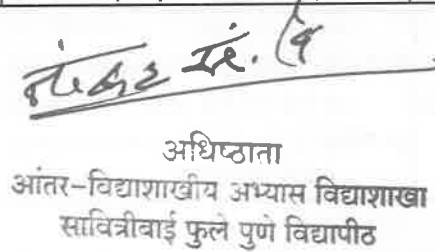 अधिष्ठाता
आंतर-विद्याशाखीय अभ्यास विद्याशाखा
सावित्रीबाई फुले पुणे विद्यापीठ